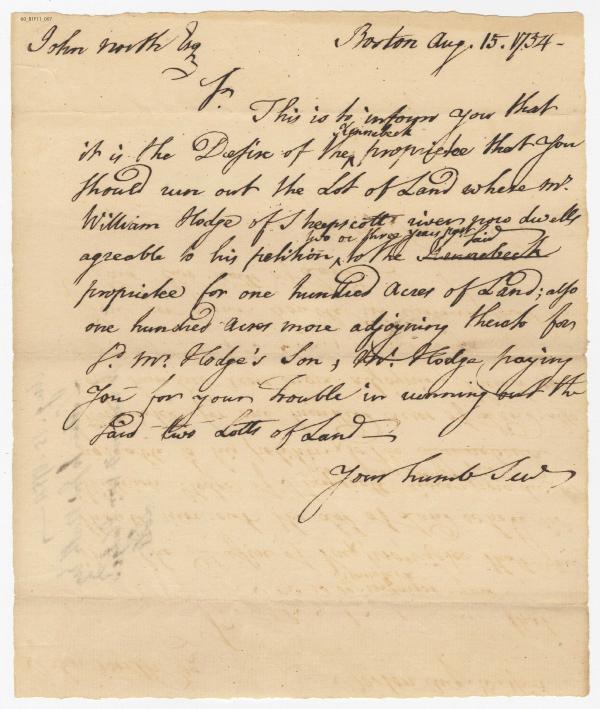 60_B1F11_007
John North Esqr
Boston Aug. 15. 1754-
Sr.
This is to inform you that
Kennebeck
it is the Desire of the ^ proprietee that you
Should run out the Lot of Land where Mr.
William Hodge of Sheepscott river now dwells
two or three years past said
agreable to his petition ^ to the Kennebeck
proprietee for one hundred acres of Land; also
one hundred acres more adjoyning thereto for
Sd. Mr. Hodge's Son, Mr. Hodge paying
you for your trouble in running out the
said two Lotts of Land
Your humb Serv